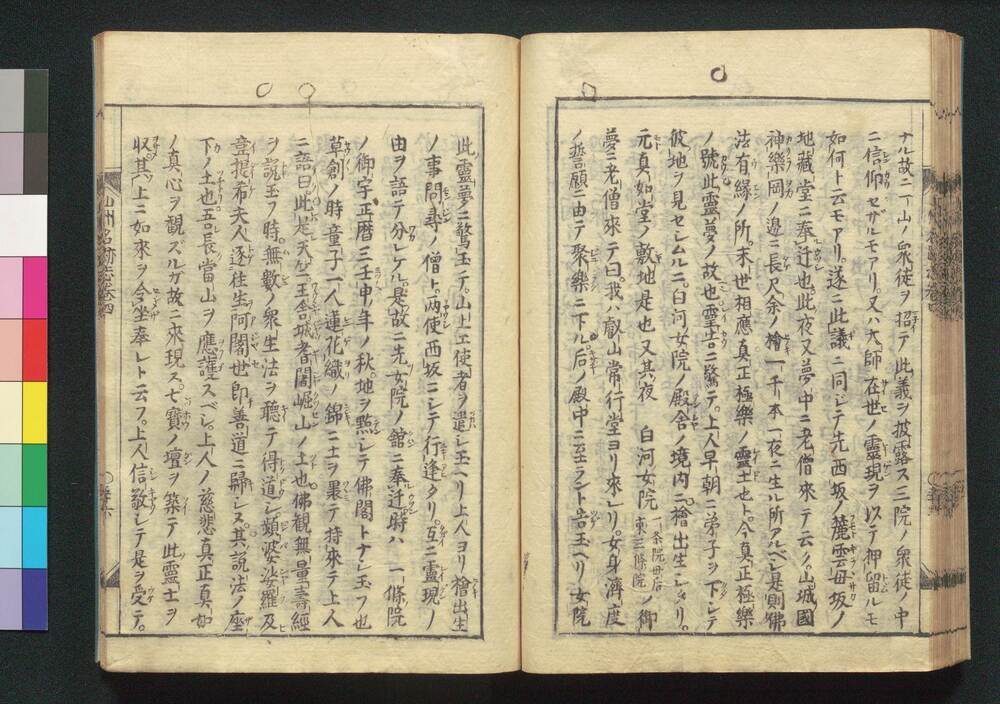 ナル故ニ一山ノ衆徒ヲ招テ此義ヲ披露ス三院ノ衆徒ノ中
ニ信仰セザルモアリ。又ハ大師在世ノ靈現ヲ以テ押留ルモ
如何ト云モアリ。遂ニ此議ニ同レテ先西坂ノ麓雲母坂ノ
地藏堂ニ奉迁也此夜又夢中ニ老僧來テ云ク。山城國
神樂岡ノ邊ニ長尺余ノ檜一千本一夜ニ生ル所アルベシ是則佛
法有縁ノ所。末世相應真正極樂ノ靈土也ト。今真正極樂
ノ號此靈夢ノ故也靈告ニ驚テ。上人早朝ニ弟子ヲ下シテ
彼地ヲ見セシムルニ。白河女院ノ殿舎ノ境内ニ檜出生シケリ。
元真如堂ノ敷地是也又其夜 白河女院一条院母后東三條院ノ御
夢ニ老僧來テ曰我ハ叡山常行堂ヨリ來レリ。女身濟度
ノ誓願ニ由テ聚樂ニ下ル后ノ殿中ニ至ラント告玉ヘリ女院
此靈夢ニ驚玉テ。山上エ使者ヲ遣シ玉ヘリ上人ヨリ檜出生
ノ事問尋ノ僧ト。两使西坂ニシテ行逢タリ。互ニ靈現ノ
由ヲ語テ分レケル。是故ニ先女院ノ舘ニ奉迁時ハ 一條院
ノ御宇正暦三壬申年ノ秋地ヲ點シテ佛閣トナシ玉フ也
草創ノ時童子一人蓮花織ノ錦ニ土ヲ裹テ持來テ上人
ニ語曰此是天竺王舎城耆闍崛山ノ土也。佛觀無量壽經
ヲ説玉フ時。無數ノ衆生法ヲ聽テ得道シ頻婆娑羅及
韋提希夫人遂往生阿闍世即善道ニ歸レス。其説法ノ座
下ノ土也五吾長當山ヲ應護スベシ。上人ノ慈悲真正真如
ノ真心ヲ觀ズルガ故ニ來現ス。七寳ノ壇ヲ築テ此靈土ヲ
収其上ニ如來ヲ令坐奉レト云フ。上人信敬シテ是ヲ受テ。